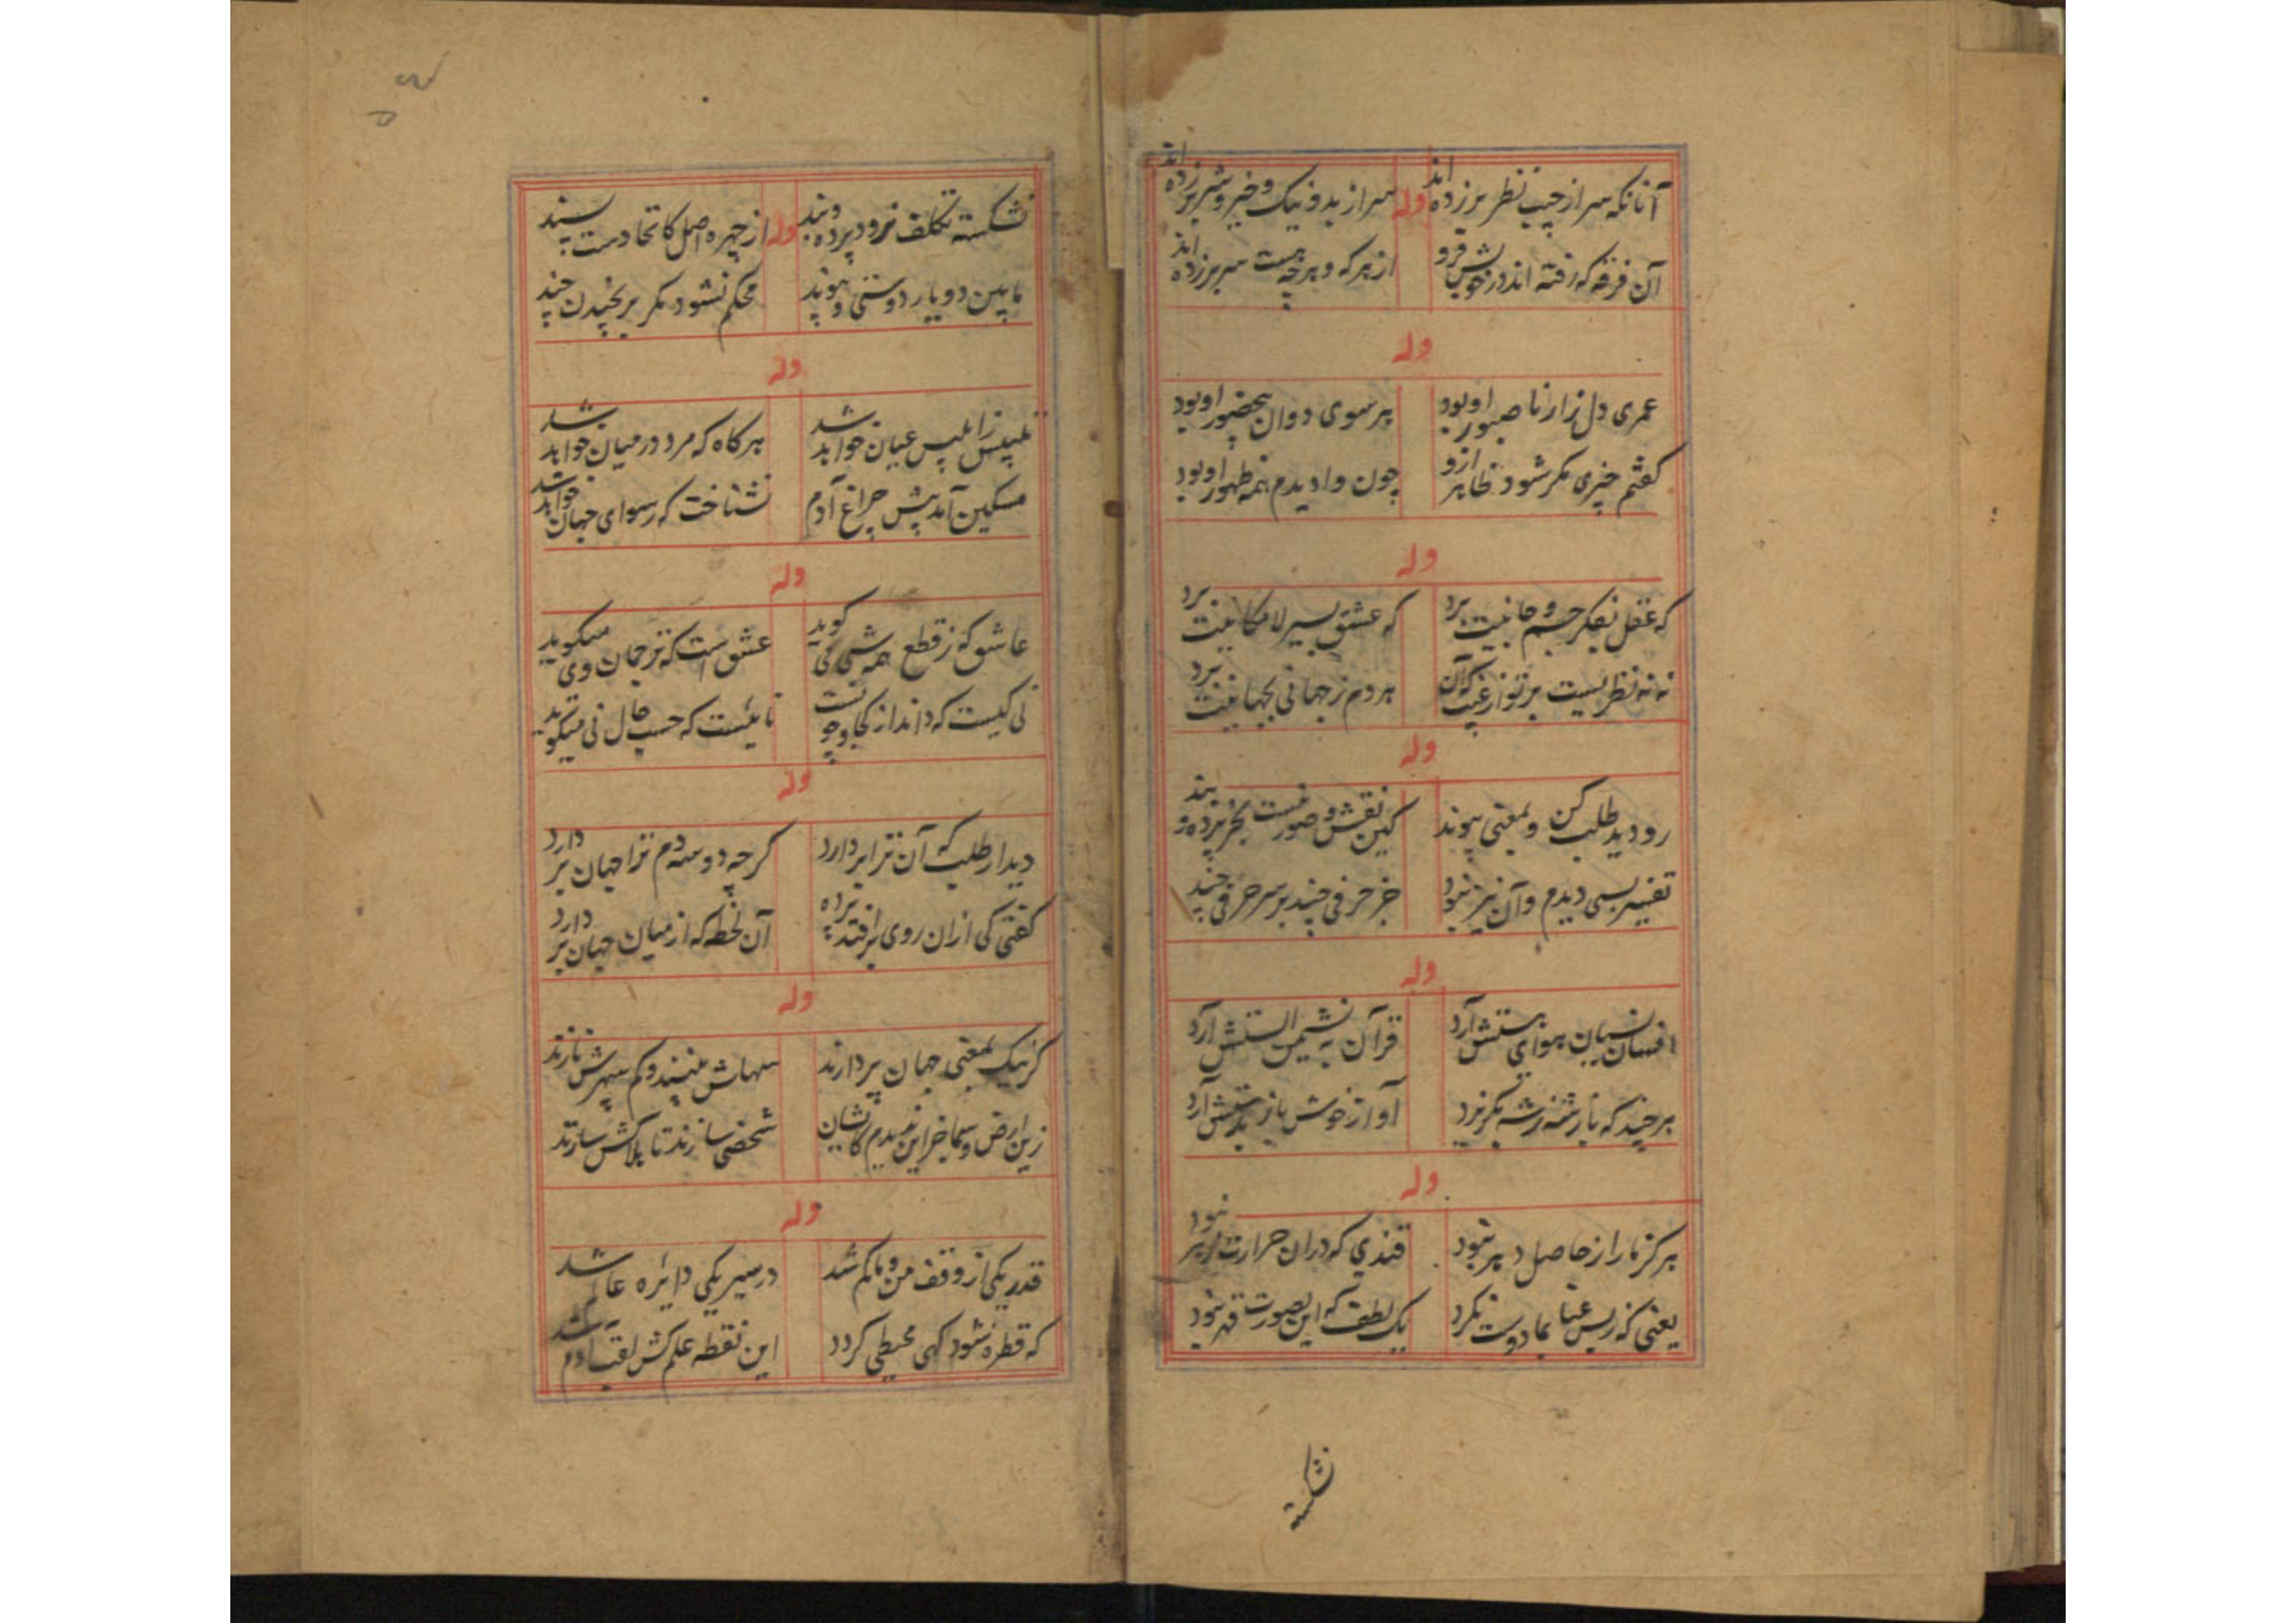 آنانکه سر از جیب نظر بر زده اند وله سر از بد و نیک و خیر و شر بر زده اند
آن فرقه که رفته اند در خویش فرو از هر که و هر چه هست سر بر زده اند
وله
عمری دل زار ناصبور او بود هر سوی دوان بحضور او بود
گفتم چیزی مگر شود ظاهر ازو چون وا دیدم همه ظهور او بود
وله
که عقل بفکر جسم و جانیت برد که عشق بسیر لامکانیت برد
نه نه نظریست بر تو از غیب که آن هر دم ز جهانی بجهانیت برد
وله
رو دید طلب کن و بمعنی پیوند کین نقش و صور نیست بجز پرده و بند
تفسیر بسی دیدم و آن نیز نبود جز حرفی چند بر سر حرفی چند
وله
افسان نسیان هوای پستش آرد قرآن به نشیمن الستش آرد
هر چند که باز رشته بگریزد آواز خوش باز بدستش آرد
وله
هرگز ما را ز حاصل دهر نبود قندی که دران حرارت زهر نبود
یعنی که بما دوست نکرد یک لطف که این بصورت قهر نبود
شکسته
شکسته تکلف نرود پرده و بند وله از چهره اصل کاتحادست پسند
مابین دو یار دوستی و پیوند محکم نشود مگر برنجیدن چند
وله
تلبیس ز ابلیس عیان خواهد شد هرگاه که مرد در میان خواهد شد
مسکین آمد پیش چراغ آدم نشناخت که رسوای جهان خواهد شد
وله
عاشق که ز قطع همه شی کی گوید عشق است که ترجمان وی میگوید
نی کیست که داند از کجا و چیست نائیست که حسب حال نی میگوید
وله
دیدار طلب که آن ترا بر دارد گرچه دو سه دم ترا جهان بر دارد
گفتی کی ازان روی برافتد پرده آن لحظه که از میان جهان بر دارد
وله
گر نیک بمعنی جهان پردازند سهاش بینند و کم سپهرش نازند
زین ارض و سما جز این ندیدم کایشان شخصی سازند تا هلاکش سازند
وله
قدر یکی از وقف من و ما کم شد در سیر یکی دایره عالم شد
که قطره شود گهی محیطی گردد این نقطه علم کش لقب آدم شد